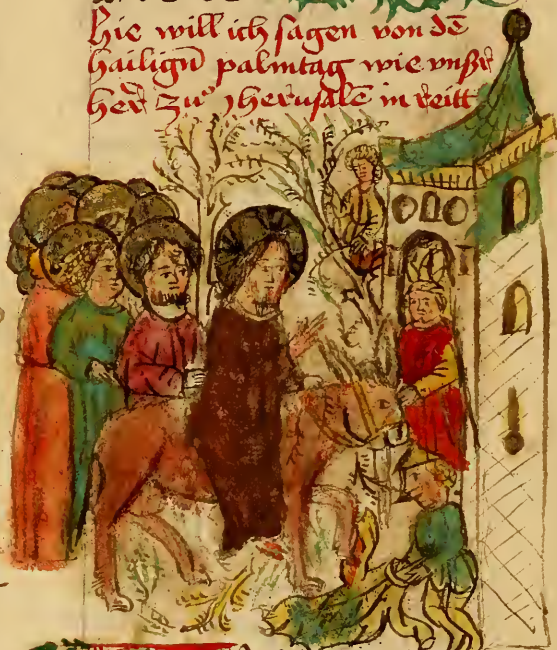 Hie will ich sagen von dē
hailigē palmtag wie vnßer̄
her̄ zuͦ Jherusalē in reitt